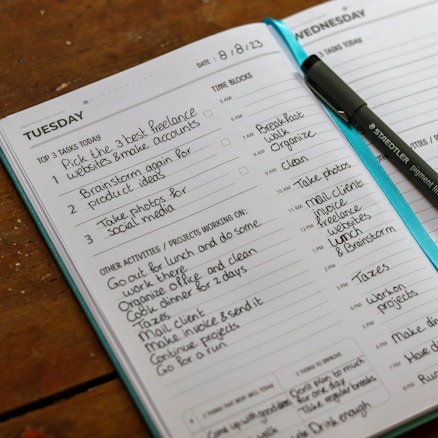 TUESDAY
DATE: 8/8/23
TOP 3 TASKS TODAY
1 Pick the 3 best freelance
websites & make accounts
2 Brainstorm again for
product ideas
3 Take photos for
social media
OTHER ACTIVITIES / PROJECTS WORKING ON:
Go out for lunch and do some
work there
Organize office and clean
Cook dinner for 2 days
Taxes
Mail client
Make invoice & send it
Continue projects
Go for a run
TIME BLOCKS
5 AM
6 AM
7 AM Breakfast
walk
8 AM Organize
9 AM clean
10 AM Take photos
11 AM mail client
invoice
12 PM freelance
websites
1 PM lunch
& Brainstorm
2 PM
3 PM Taxes
4 PM work on
projects
5 PM
6 PM Make
7 PM Have
8 PM Run
2 THINGS THAT WENT WELL TODAY
Come up with good
walk
2 THINGS TO IMPROVE
Don't plan to much
for one day
Take regular breaks
Drink enough
WEDNESDAY
TOP 3 TASKS TODAY
1
2
3
STAEDTLER pigment